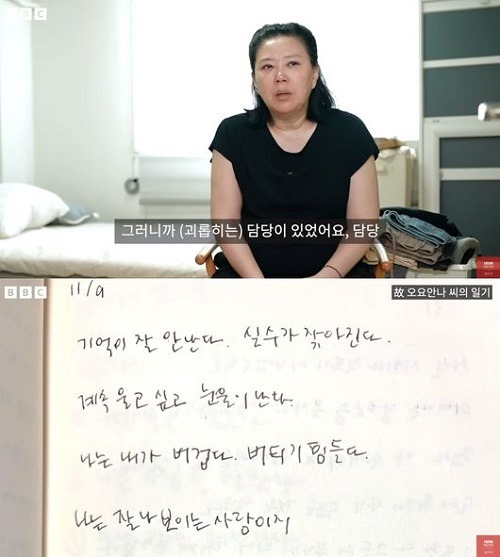 BBC
그러니까 (괴롭히는) 담당이 있었어요, 담당
BBC
BBC
11/9
故 오요안나 씨의 일기
기억이 잘 안난다. 실수가 잦아진다.
계속 울고 싶고 눈물이 난다.
나는 내가 버겁다. 버티기 힘들다.
나는 잘나 보이는 사람이지
BBC